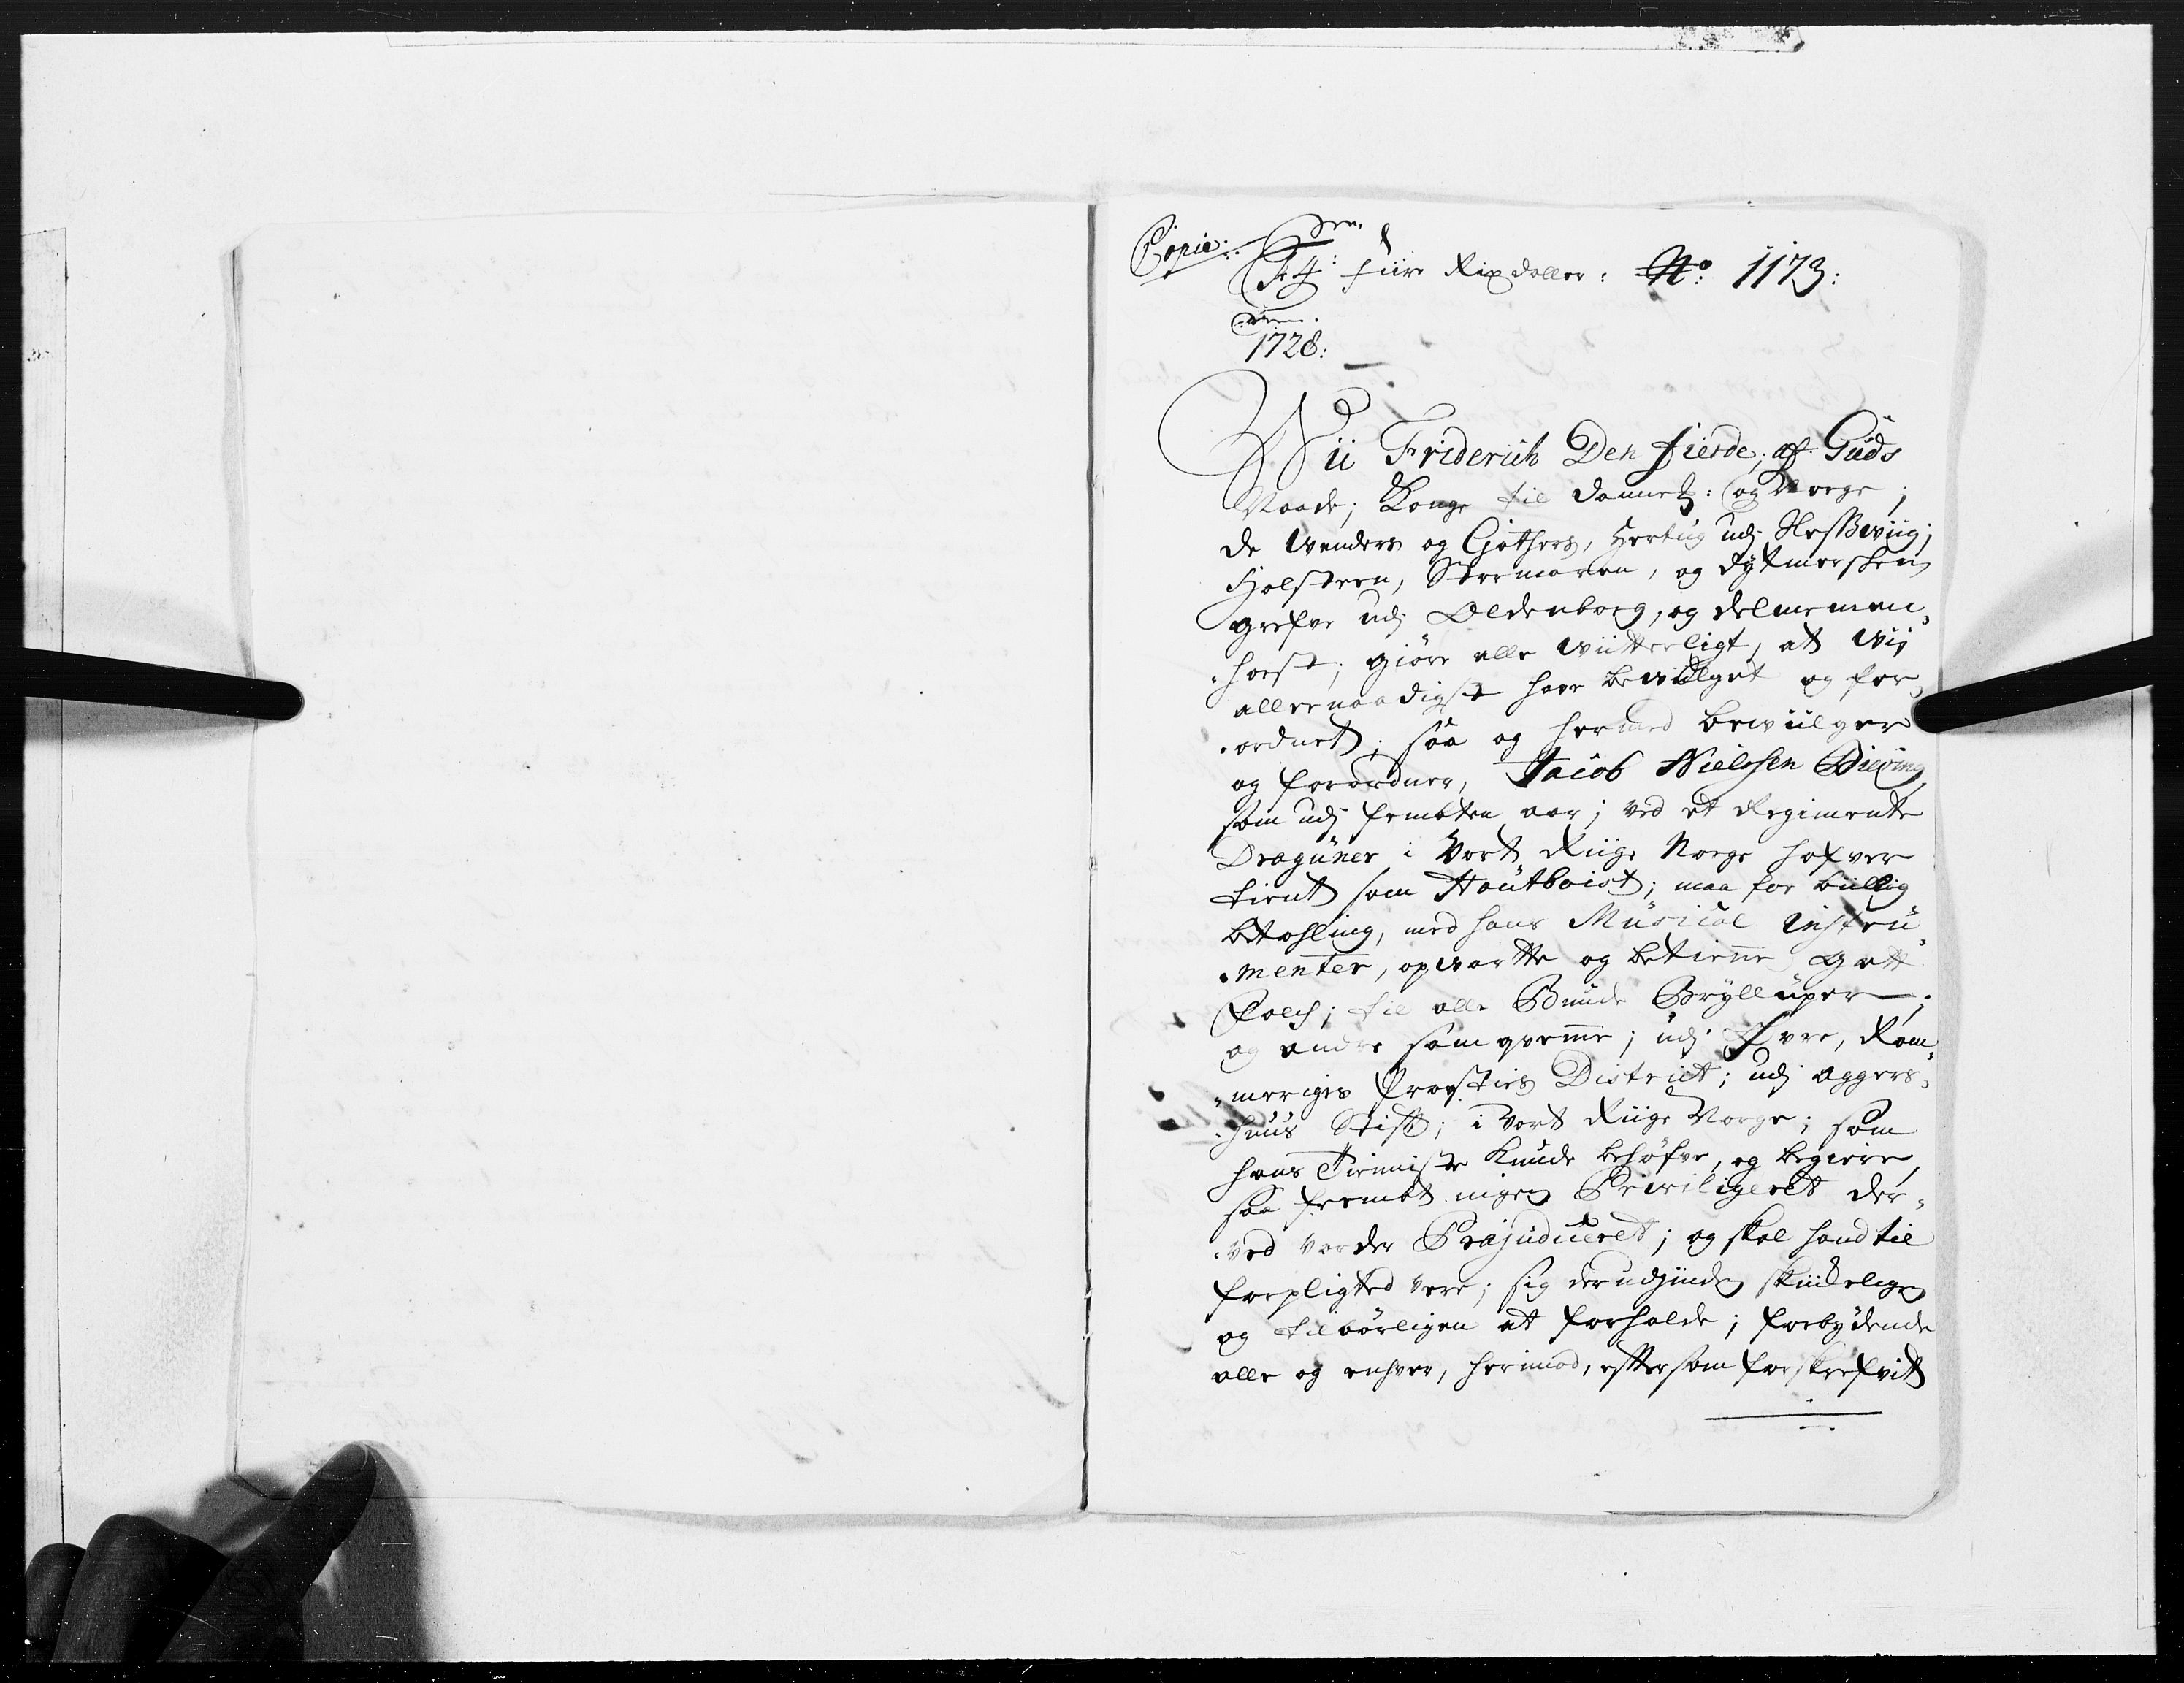 Copie:
F 4: fiire Rixdaller: No: 1173:
1728:
Wii Friderich Den fierde; af Guds
Naade; Konge til Danmk: og Norge;
de Wenders og Gothers, Hertug udj Slesswiig;
Holsteen, Stormarn, og Dytmersken
Grefve udj Oldenborg, og Delmemen¬
horst; giøre alle wiitterligt, at wii
allernaadigst have bewilget og for¬
ordnet; saa og hermed bewiilger
og forordner, Jacob Nielssen
som udj fembten aar; ved et Regimente
Dragüner i Vort Riige Norge hafver
tient som Houtboist; maa for billig
betahling, med hans Müsical Instrü¬
menter, opwartte og betienne Gott
folch; til alle Bunde Brÿllüper;
og andre samqvemme; udj Øvre, Rom¬
meriges Provsties District; udj Aggers¬
huus Stift; i Vort Riige Norge; som
hans Tienniste kunde behøfve, og begiere,
saa fremt ingen Privilegeret der¬
ved vorder Præjudiceret; og skal hand til
forpligted være; sig derudjinden skiikelig
og tilbörligen at forholde; forbÿdende
alle og enhver, herimod, eftter som forskrefvit